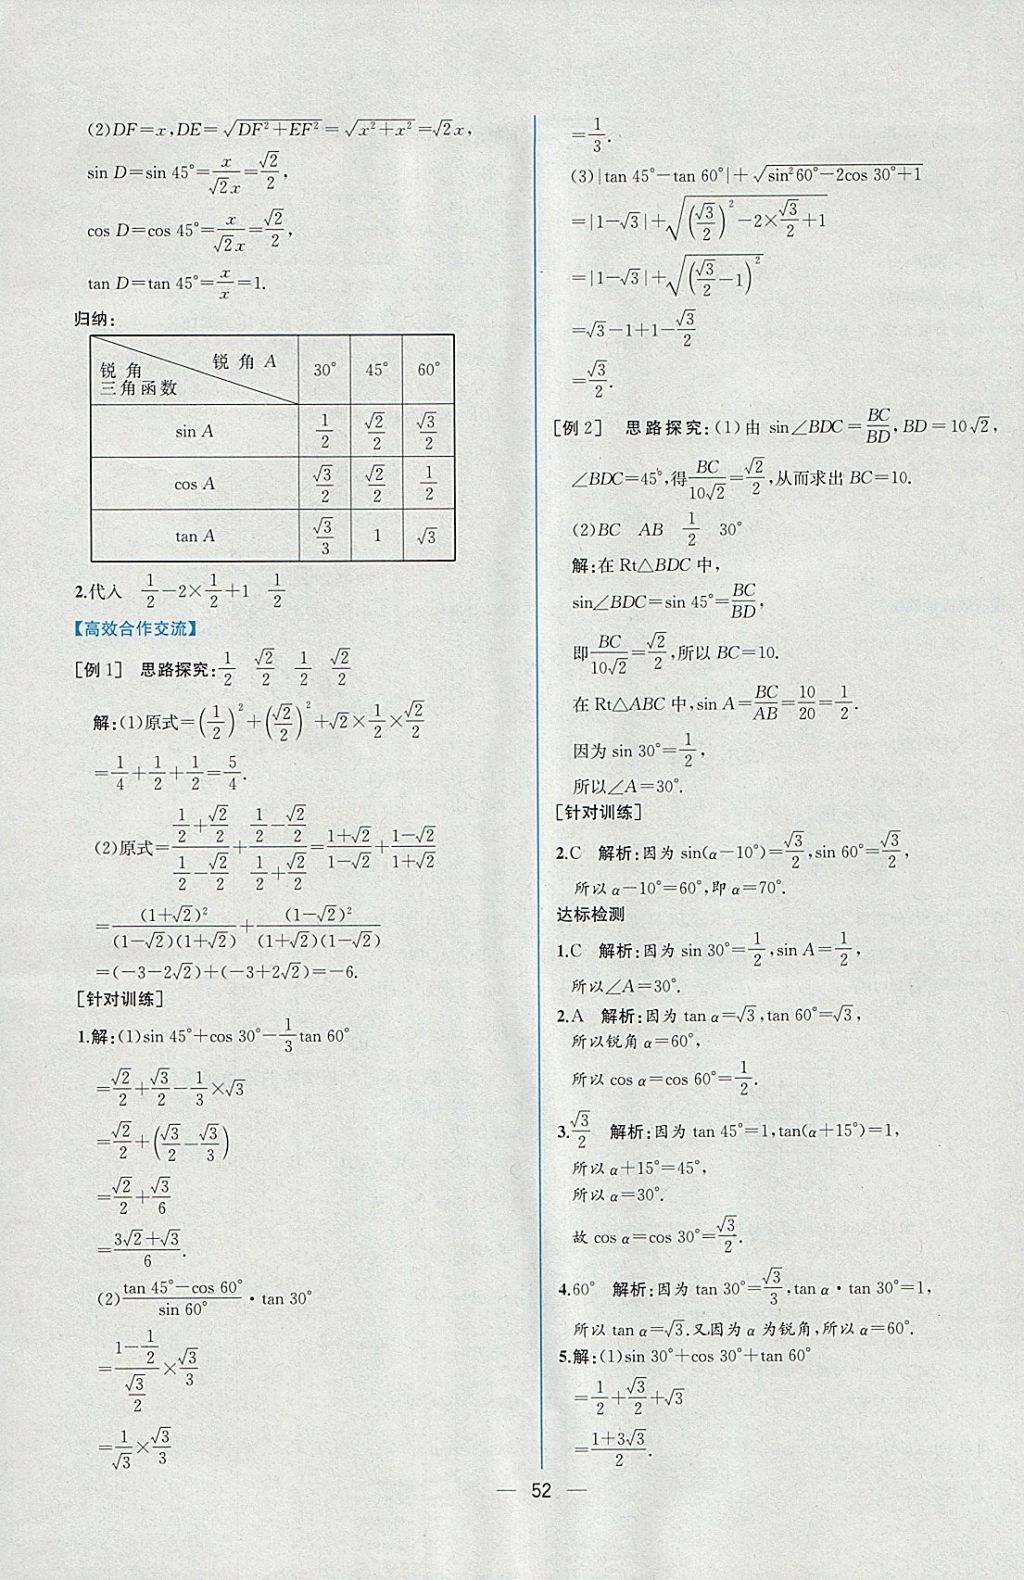 (2)DF=x,DE=√(DF²+EF²)=√(x²+x²)=√2x,
sin D=sin 45°=x/(√2x)=√2/2,
cos D=cos 45°=x/(√2x)=√2/2,
tan D=tan 45°=x/x=1.
归纳:
锐角三角函数 锐角A 30° 45° 60°
sin A 1/2 √2/2 √3/2
cos A √3/2 √2/2 1/2
tan A √3/3 1 √3
2.代入 1/2-2×1/2+1 1/2
【高效合作交流】
[例1] 思路探究:1/2 √2/2 1/2 √2/2
解:(1)原式=(1/2)²+(√2/2)²+√2×1/2×√2/2
=1/4+1/2+1/2=5/4.
(2)原式=(1/2+√2/2)/(1/2-√2/2)+(1/2-√2/2)/(1/2+√2/2)=(1+√2)/(1-√2)+(1-√2)/(1+√2)
=(1+√2)²/((1-√2)(1+√2))+(1-√2)²/((1+√2)(1-√2))
=(-3-2√2)+(-3+2√2)=-6.
[针对训练]
1.解:(1)sin 45°+cos 30°-1/3tan 60°
=√2/2+√3/2-1/3×√3
=√2/2+(√3/2-√3/3)
=√2/2+√3/6
=(3√2+√3)/6.
(2)(tan 45°-cos 60°)/sin 60°·tan 30°
=(1-1/2)/(√3/2)×√3/3
=1/√3×√3/3
=1/3.
(3)|tan 45°-tan 60°|+√(sin²60°-2cos 30°+1)
=|1-√3|+√((√3/2)²-2×√3/2+1)
=|1-√3|+√((√3/2-1)²)
=√3-1+1-√3/2
=√3/2.
[例2] 思路探究:(1)由 sin∠BDC=BC/BD,BD=10√2,
∠BDC=45°,得BC/(10√2)=√2/2,从而求出BC=10.
(2)BC AB 1/2 30°
解:在Rt△BDC中,
sin∠BDC=sin 45°=BC/BD,
即BC/(10√2)=√2/2,所以BC=10.
在Rt△ABC中,sin A=BC/AB=10/20=1/2.
因为sin 30°=1/2,
所以∠A=30°.
[针对训练]
2.C 解析:因为sin(α-10°)=√3/2,sin 60°=√3/2,
所以α-10°=60°,即α=70°.
达标检测
1.C 解析:因为sin 30°=1/2,sin A=1/2,
所以∠A=30°.
2.A 解析:因为tan α=√3,tan 60°=√3,
所以锐角α=60°,
所以cos α=cos 60°=1/2.
3.√3/2 解析:因为tan 45°=1,tan(α+15°)=1,
所以α+15°=45°,
所以α=30°.
故cos α=cos 30°=√3/2.
4.60° 解析:因为tan 30°=√3/3,tan α·tan 30°=1,
所以tan α=√3.又因为α为锐角,所以α=60°.
5.解:(1)sin 30°+cos 30°+tan 60°
=1/2+√3/2+√3
=(1+3√3)/2.
— 52 —